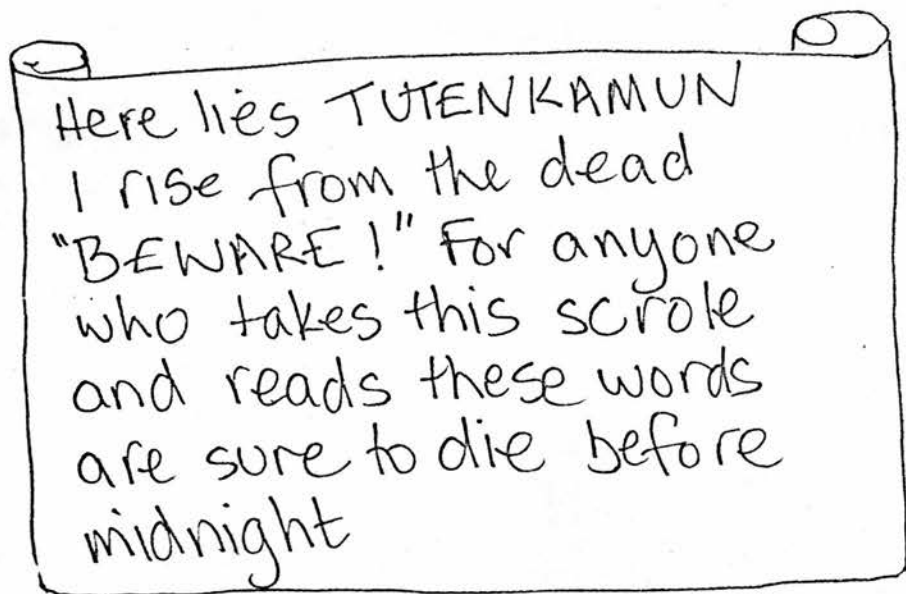 Here lies TUTENKAMUN
I rise from the dead
"BEWARE!" For anyone
who takes this scrole
and reads these words
are sure to die before
midnight